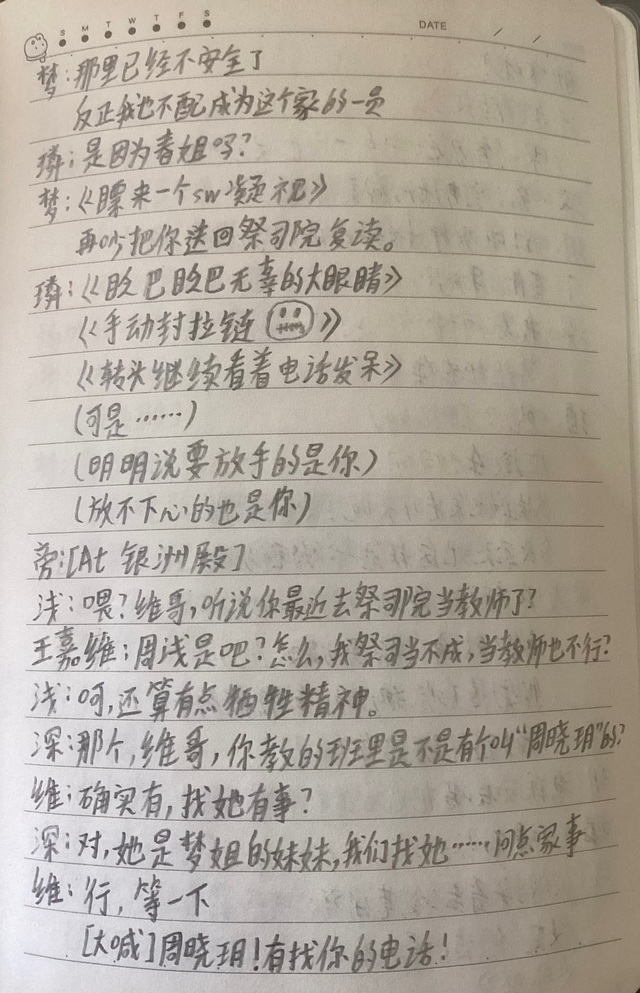 S M T W T F S
DATE / /
梦：那里已经不安全了
反正我也不配成为这个家的一员
璘：是因为春姐吗？
梦：《瞟来一个sw凝视》
再吵把你送回祭司院复读。
璘：《眨巴眨巴无辜的大眼睛》
《手动封拉链》
《转头继续看着电话发呆》
（可是……）
（明明说要放手的是你）
（放不下心的也是你）
旁：[At 银洲殿]
浅：喂？维哥，听说你最近去祭司院当教师了？
王嘉维：周浅是吧？怎么，我祭司当不成，当教师也不行？
浅：呵，还算有点牺牲精神。
深：那个，维哥，你教的班里是不是有个叫“周晓玥”的？
维：确实有，找她有事？
深：对，她是梦姐的妹妹，我们找她……问点家事
维：行，等一下
[大喊]周晓玥！有找你的电话！